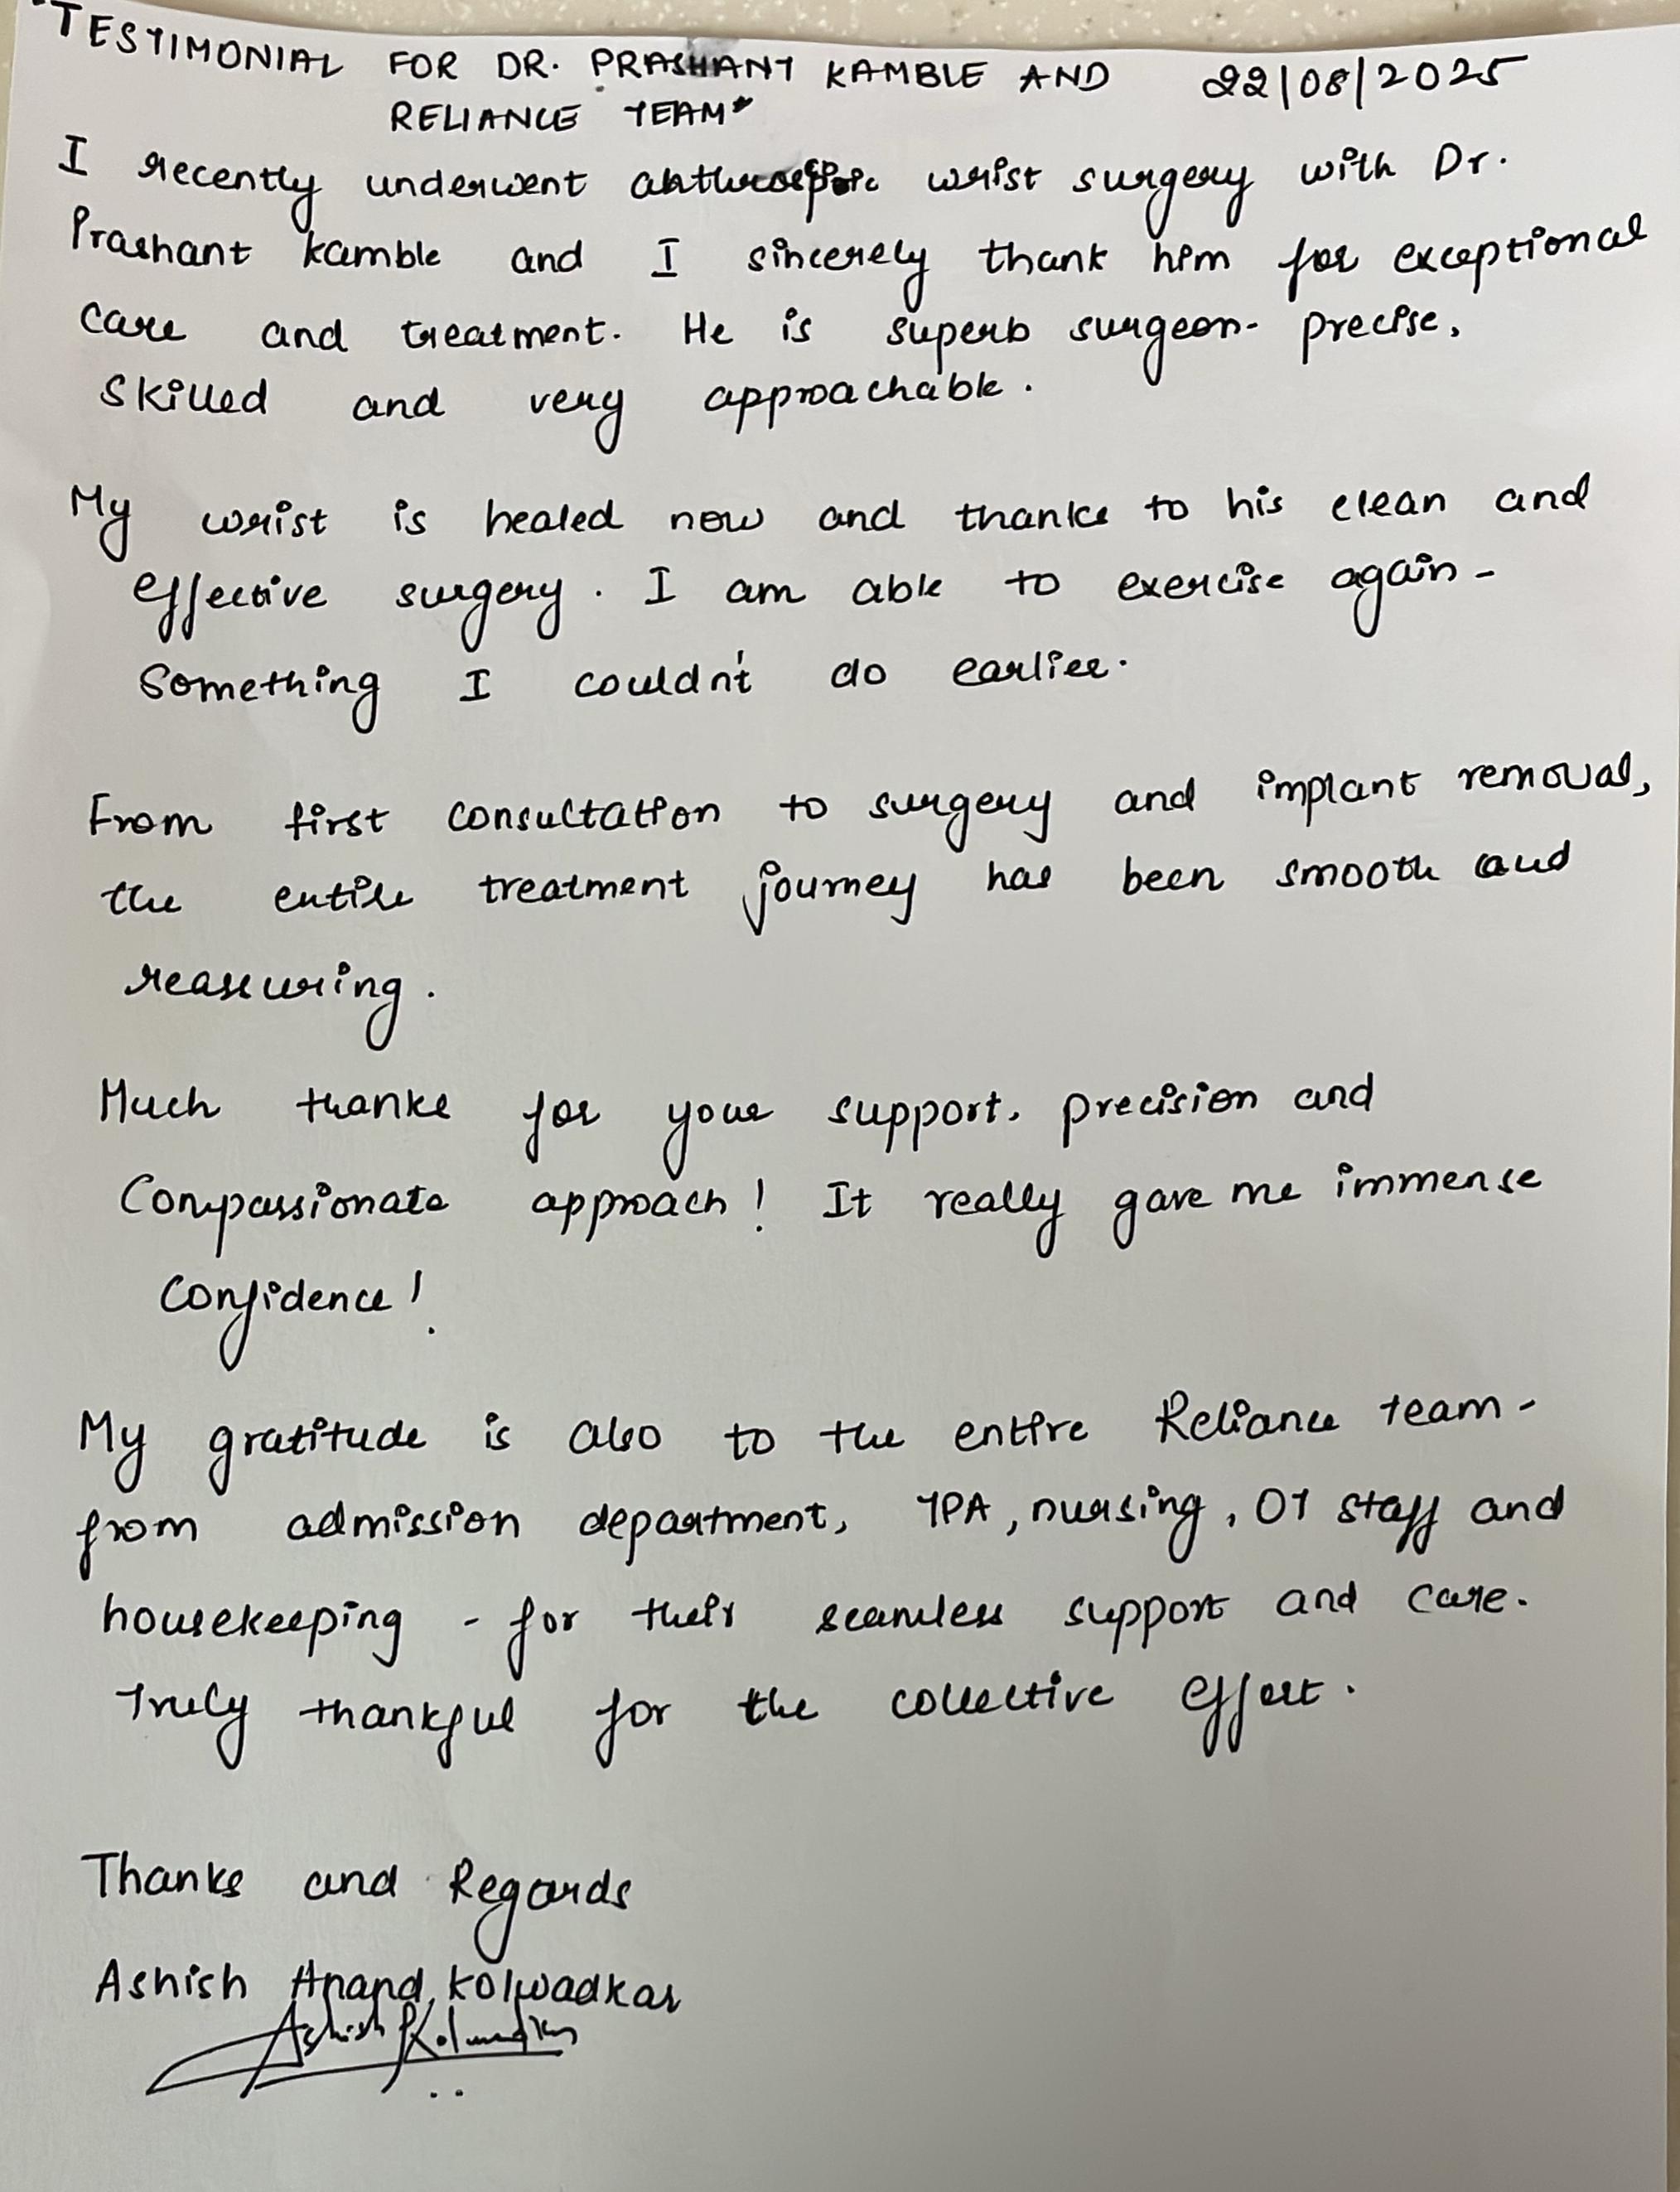 "TESTIMONIAL FOR DR. PRASHANT KAMBLE AND 22/08/2025
RELIANCE TEAM"
I recently underwent wrist surgery with Dr.
Prashant Kamble and I sincerely thank him for exceptional
care and treatment. He is superb surgeon- precise,
skilled and very approachable.
My wrist is healed now and thanks to his clean and
effective surgery. I am able to exercise again -
Something I couldn't do earlier.
From first consultation to surgery and implant removal,
the entire treatment journey has been smooth and
reassuring.
Much thanks for your support, precision and
Compassionate approach! It really gave me immense
confidence!
My gratitude is also to the entire Reliance team -
from admission department, TPA, nursing, OT staff and
housekeeping - for their seamless support and care.
Truly thankful for the collective effort.
Thanks and Regards
Ashish Anand Kolwadkar
Ashish Kolwadkar